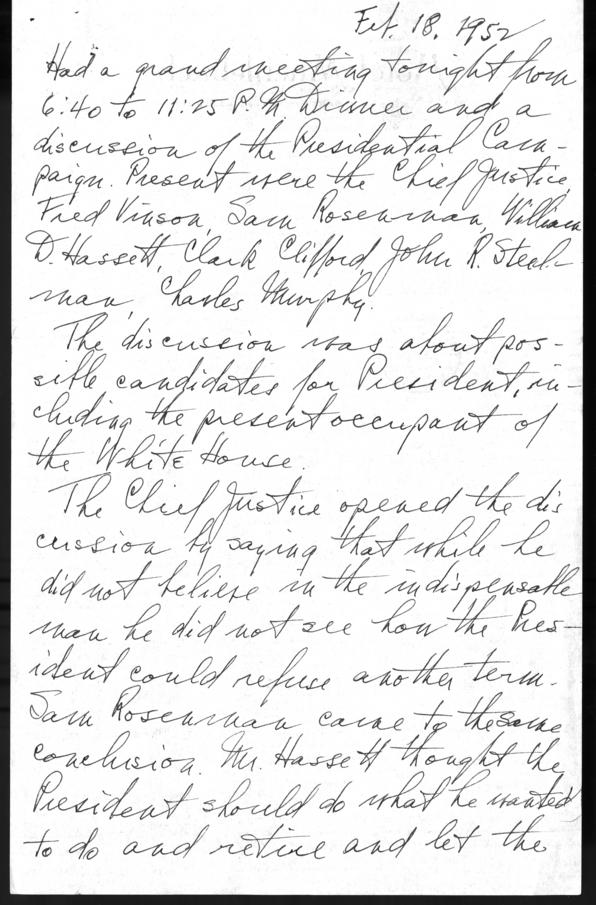 Feb. 18, 1952
Had a grand meeting tonight from
6:40 to 11:25 P.M. Dinner and a
discussion of the Presidential Cam-
paign. Present were the Chief Justice,
Fred Vinson, Sam Rosenman, William
D. Hassett, Clark Clifford, John R. Steel-
man, Charles Murphy.
The discussion was about pos-
sible candidates for President, in-
cluding the present occupant of
the White House.
The Chief Justice opened the dis
cussion by saying that while he
did not believe in the indispensable
man he did not see how the Pres-
ident could refuse another term.
Sam Rosenman came to the same
conclusion. Mr. Hassett thought the
President should do what he wanted
to do and retire and let the